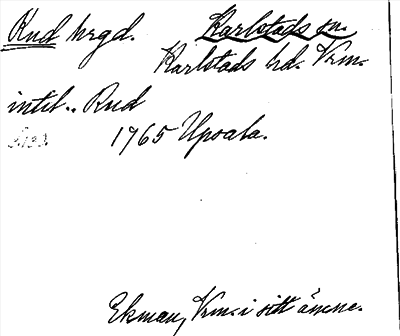 Rud hrgd. Karlstads sn.
Karlstads hd. Vrm.
intil.. Rud
1765 Upsala.
Ekman, Vrm. i sitt ämne.